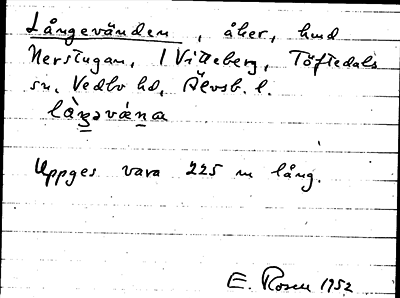 Långevänden, åker, hmd
Nerstugan, 1 Vitteberg, Töftedals
sn, Vedbo hd, Älvsb. l.
låŋəvæna
Uppges vara 225 m lång.
E. Rosen 1952